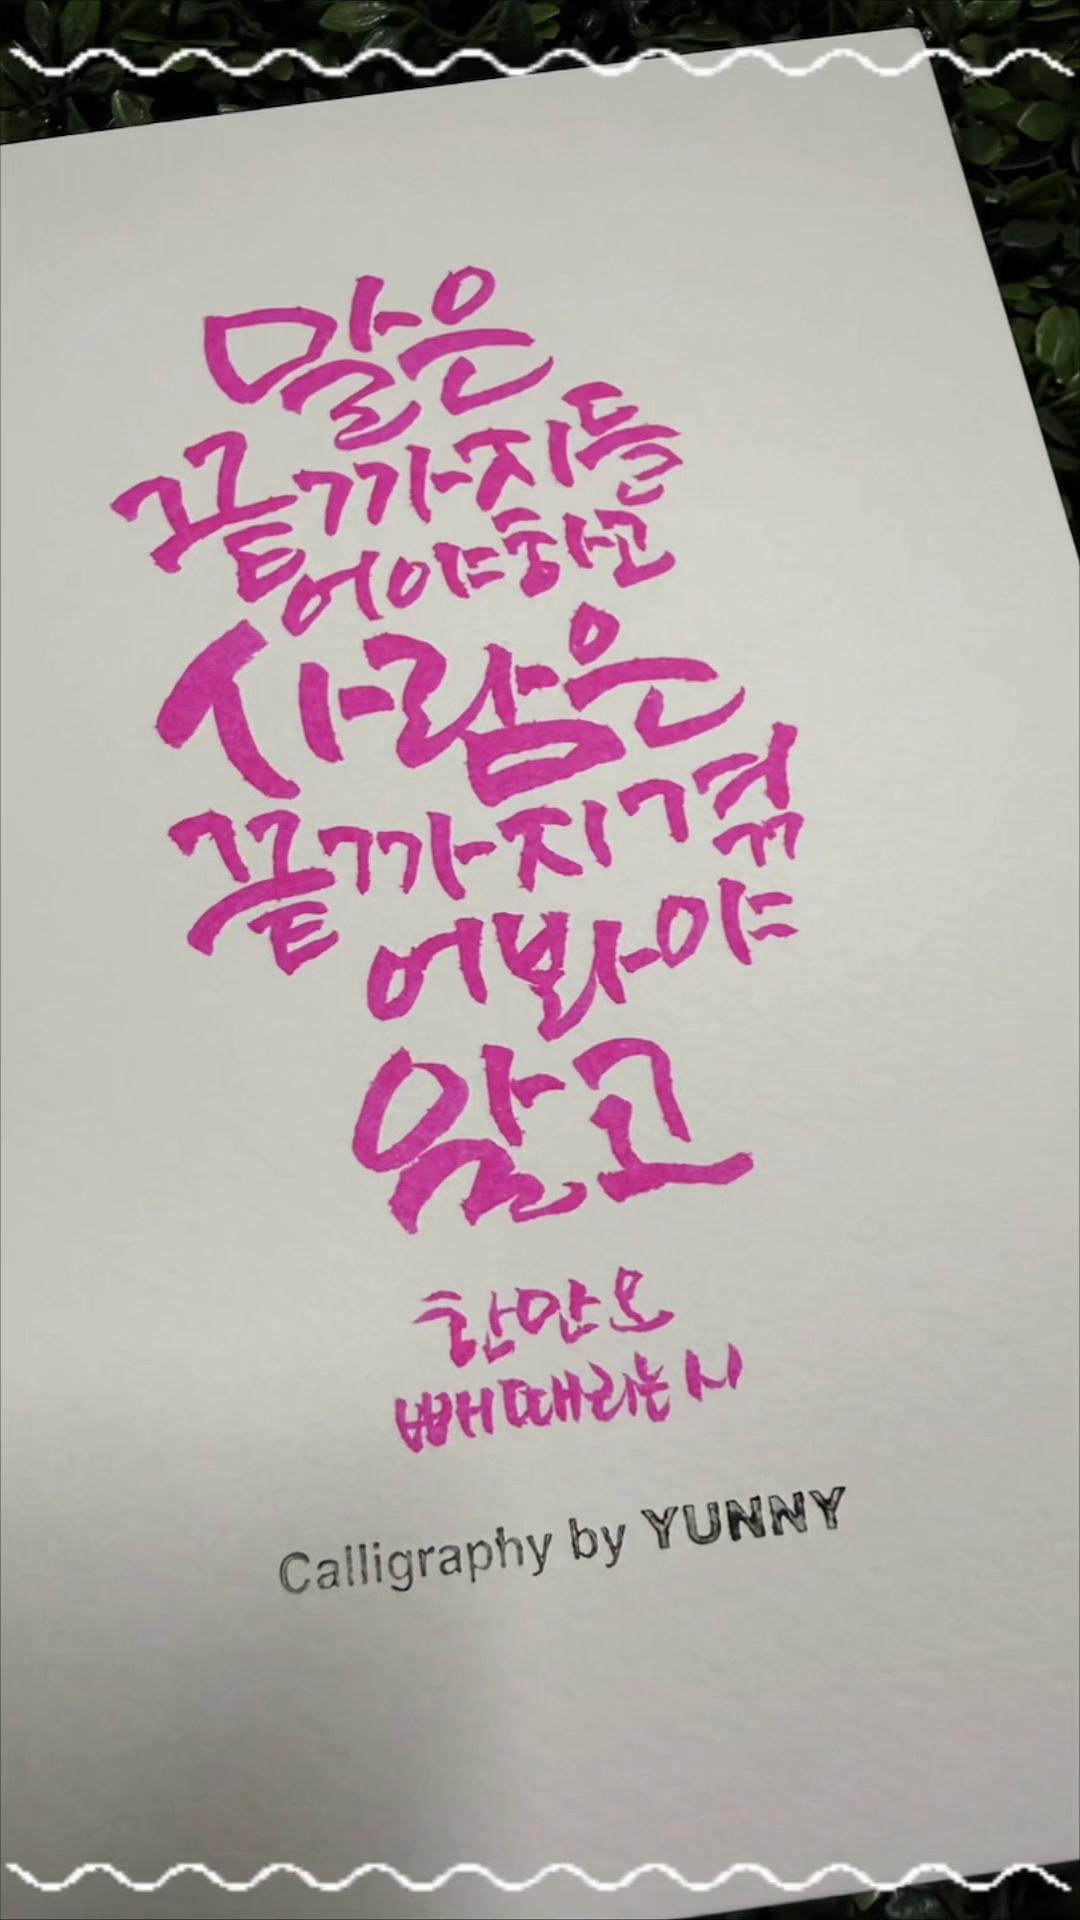 말은
끝까지들
어야하고
사람은
끝까지겪
어봐야
알고
한만오
뼈때리는시
Calligraphy by YUNNY